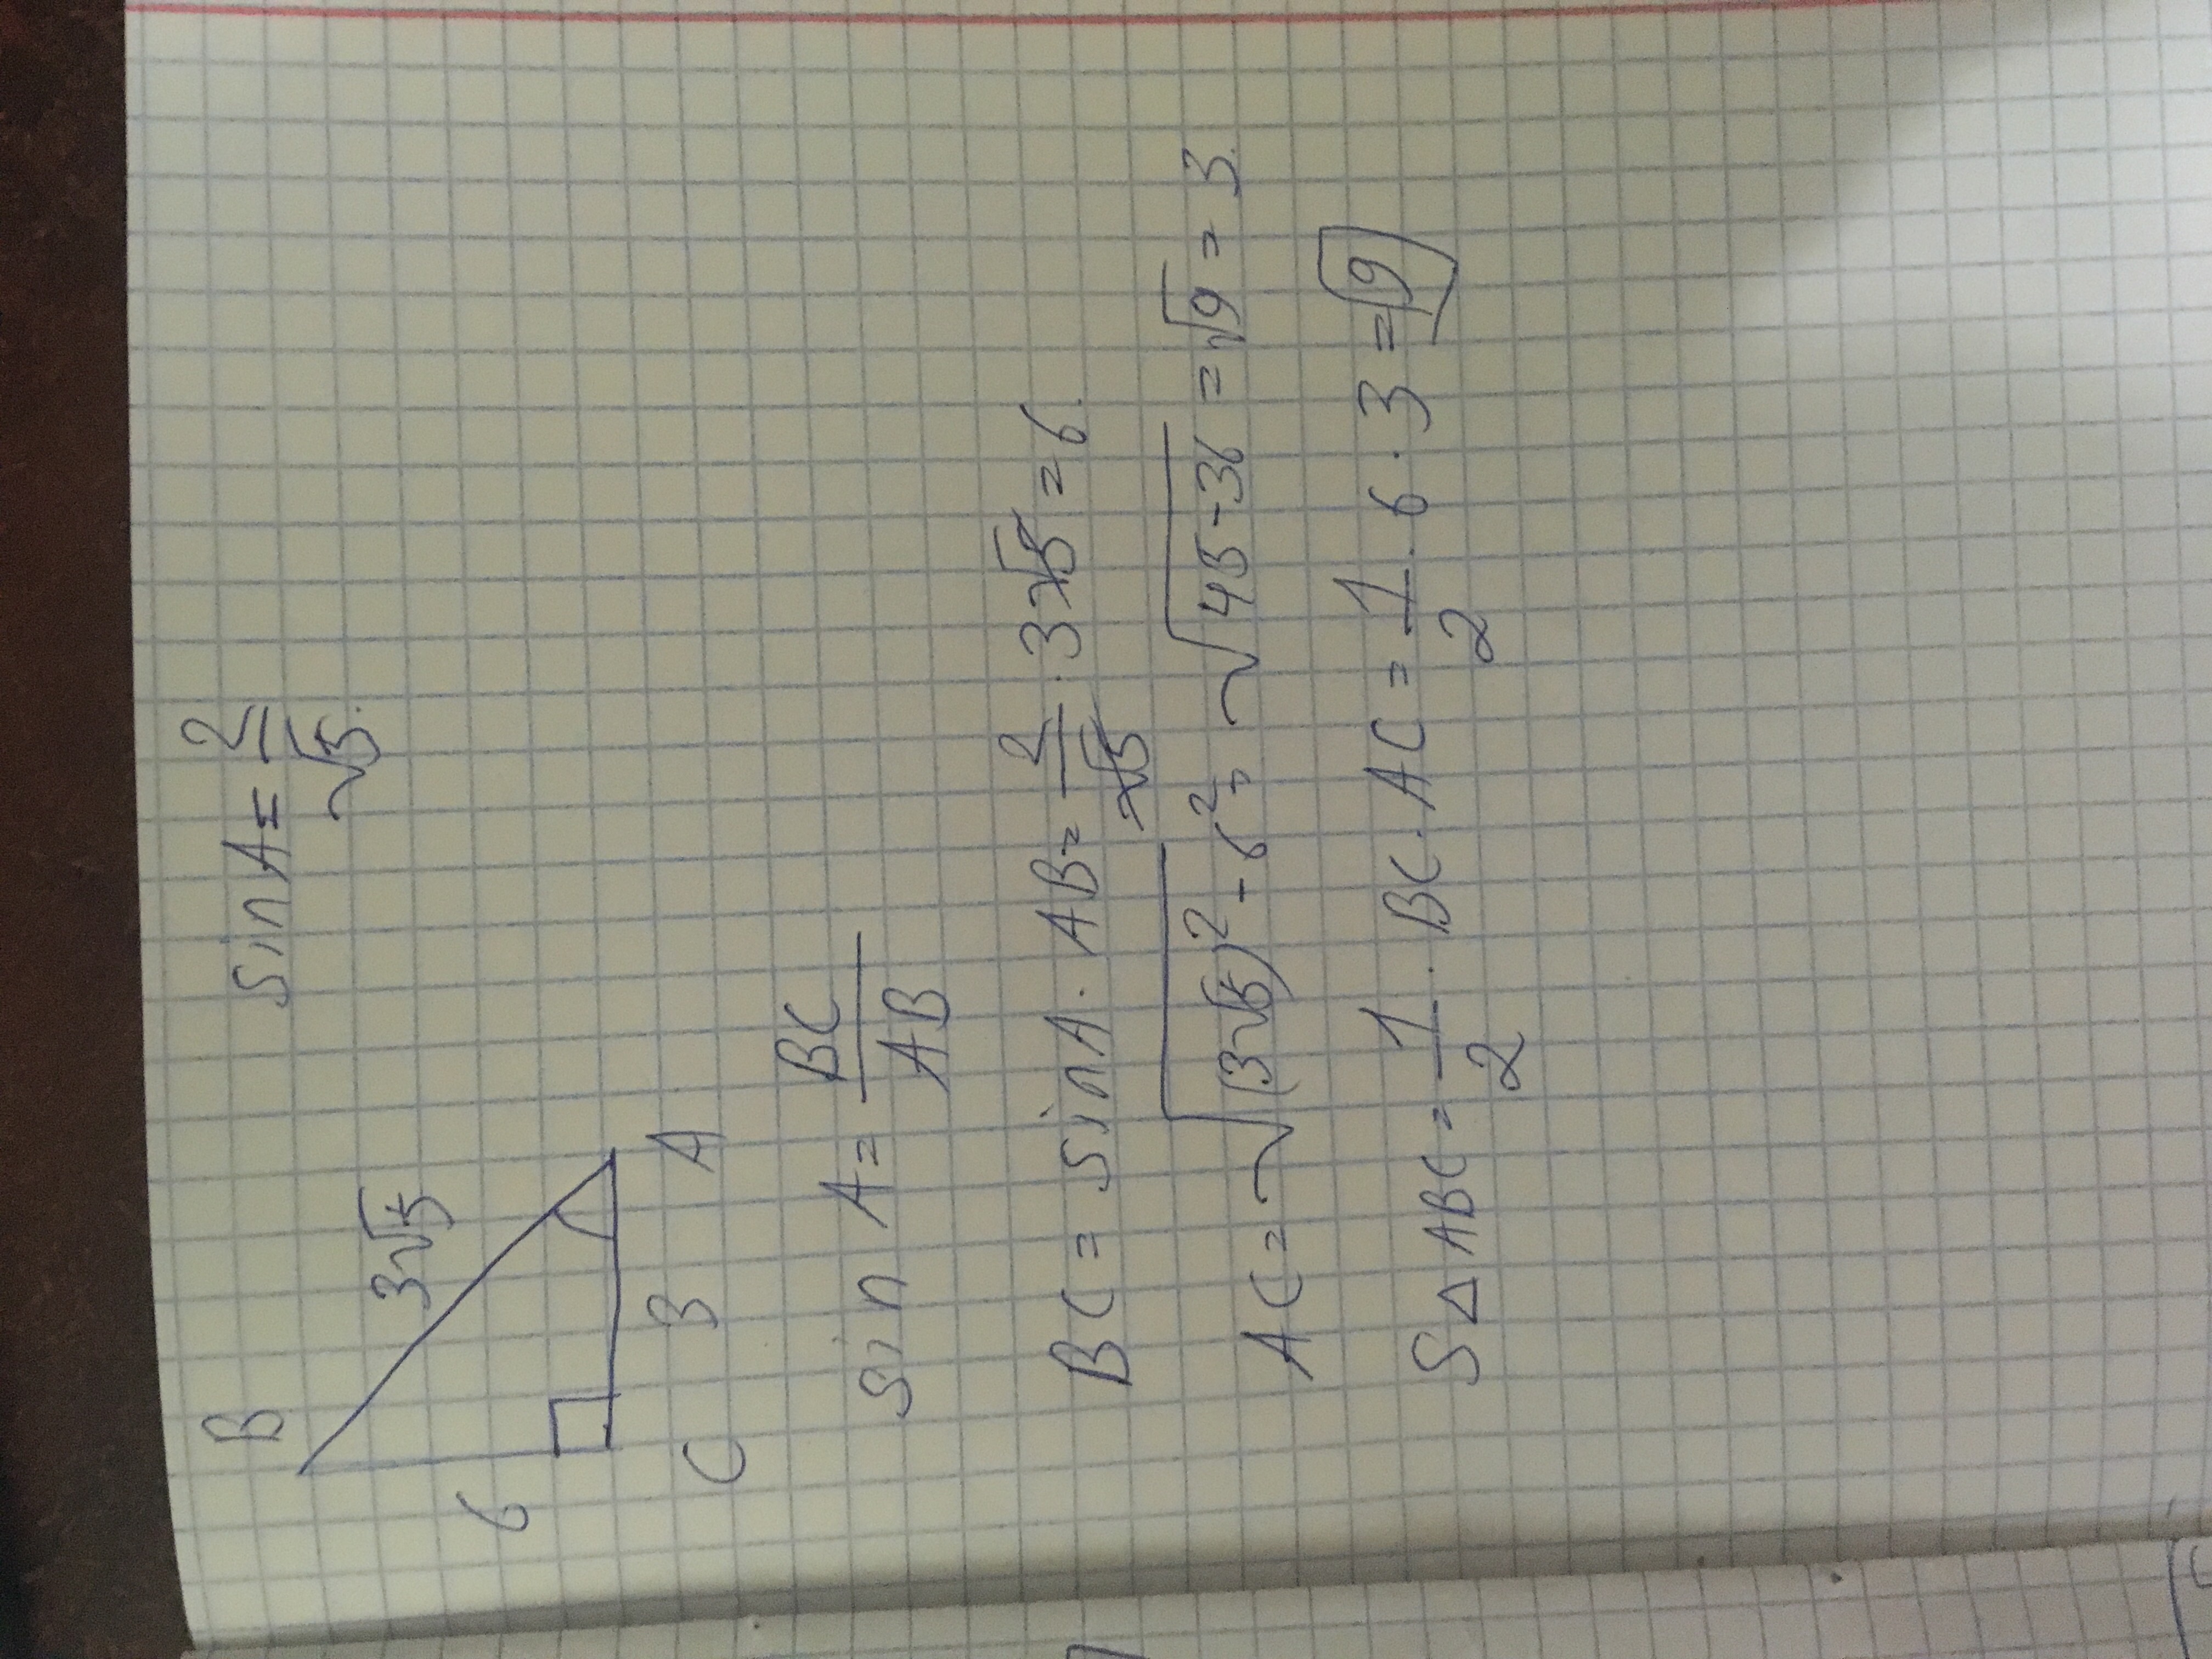 sin A = 2/√5.
B
3√5
6
C 3 A
sin A = BC/AB
BC = sin A · AB = 2/√5 · 3√5 = 6.
AC = √((3√5)² - 6²) = √(45-36) = √9 = 3.
S△ABC = 1/2 · BC · AC = 1/2 · 6 · 3 = 9